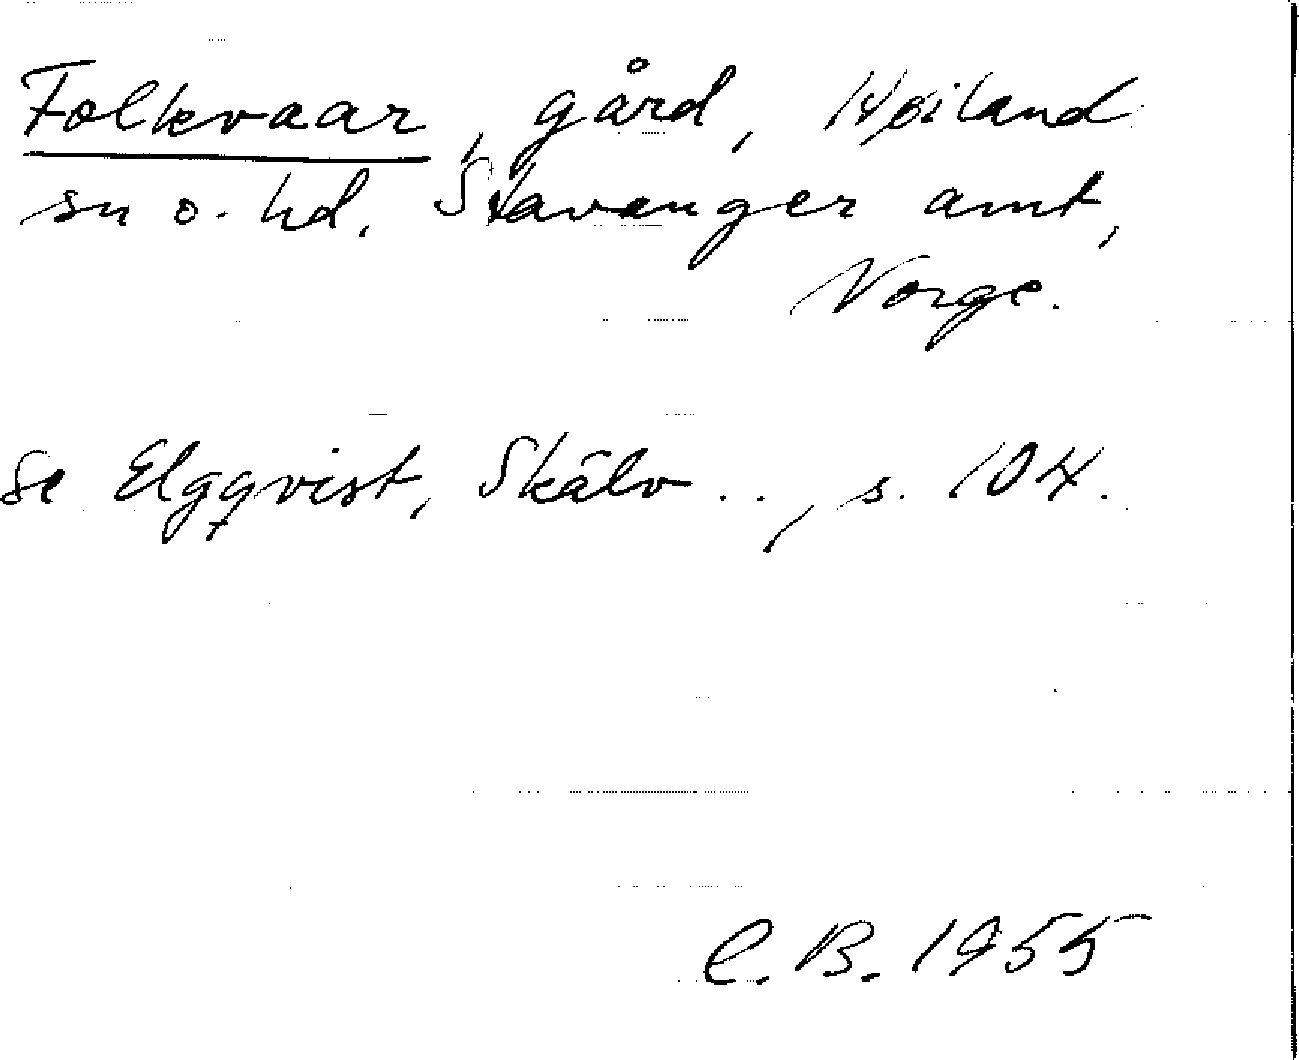 Folkvaar, gård, Høiland
sn o. hd, Stavanger amt,
Norge.
Se Elgqvist, Skälv.., s. 104.
C. B. 1955